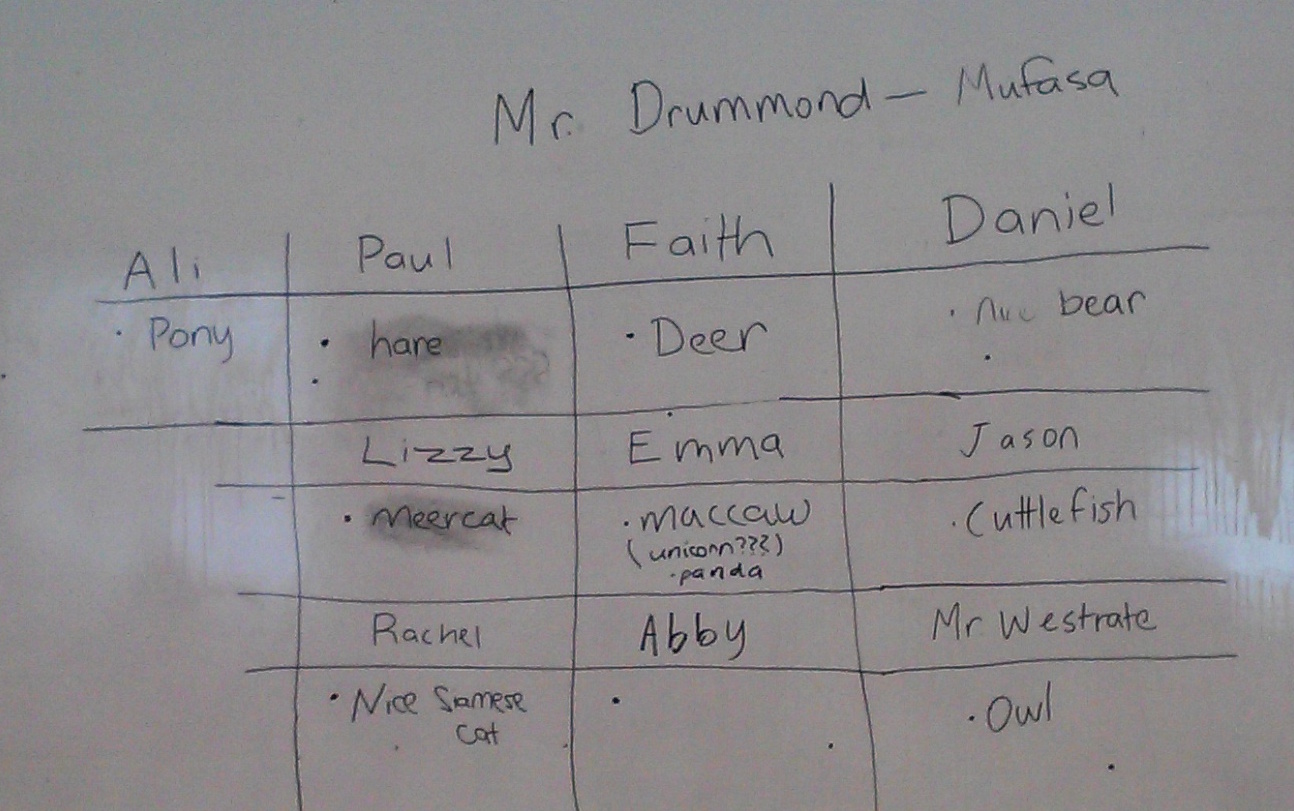 Mr. Drummond – Mufasa
Ali Paul Faith Daniel
· Pony · hare · Deer · bear
Lizzy Emma Jason
· Meercat · maccaw · Cuttlefish
(unicorn???)
· panda
Rachel Abby Mr Westrate
· Nice Siamese · Owl
cat